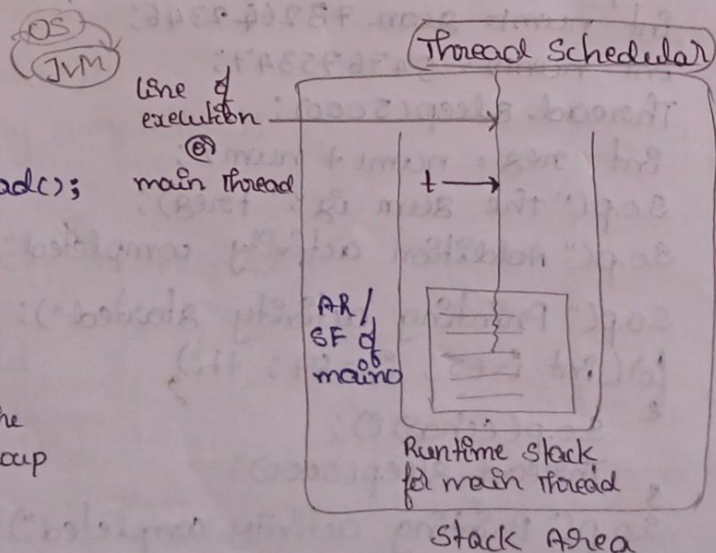 OS
JVM
Thread Schedular
Line of
execution
or
main Thread
adc();
t
AR/
SF of
main()
he
oup
Runtime stack
for main Thread
Stack Area